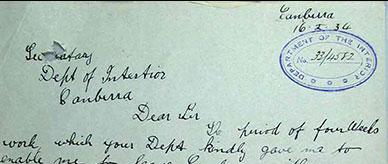 Canberra
16.3.34
DEPARTMENT OF THE INTERIOR
No. 33/4582
Secretary
Dept of Intertior
Canberra
Dear Sir
period of four Weeks
work, which your Dept kindly gave me to
enable me to